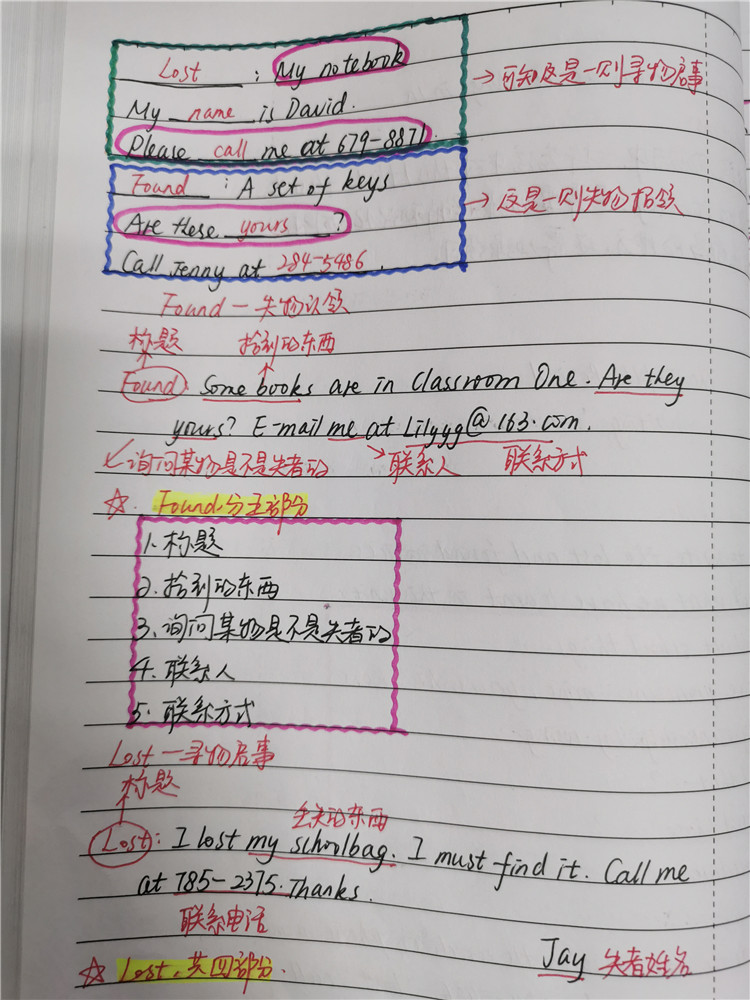 Lost : My notebook
→ 可知这是一则寻物启事
My name is David.
Please call me at 679-8871
Found : A set of keys
→ 这是一则失物招领
Are these yours ?
Call Jenny at 284-5486.
Found — 失物认领
标题 拾到的东西
Found: Some books are in Classroom One. Are they
yours? E-mail me at Lilyyg@163.com.
询问某物是不是失者的 联系人 联系方式
☆. Found.分五部分
1. 标题
2. 拾到的东西
3. 询问某物是不是失者的
4. 联系人
5. 联系方式
Lost — 寻物启事
标题
丢失的东西
Lost: I lost my schoolbag. I must find it. Call me
at 785-2375. Thanks.
联系电话
Jay 失者姓名
☆ Lost, 共四部分.